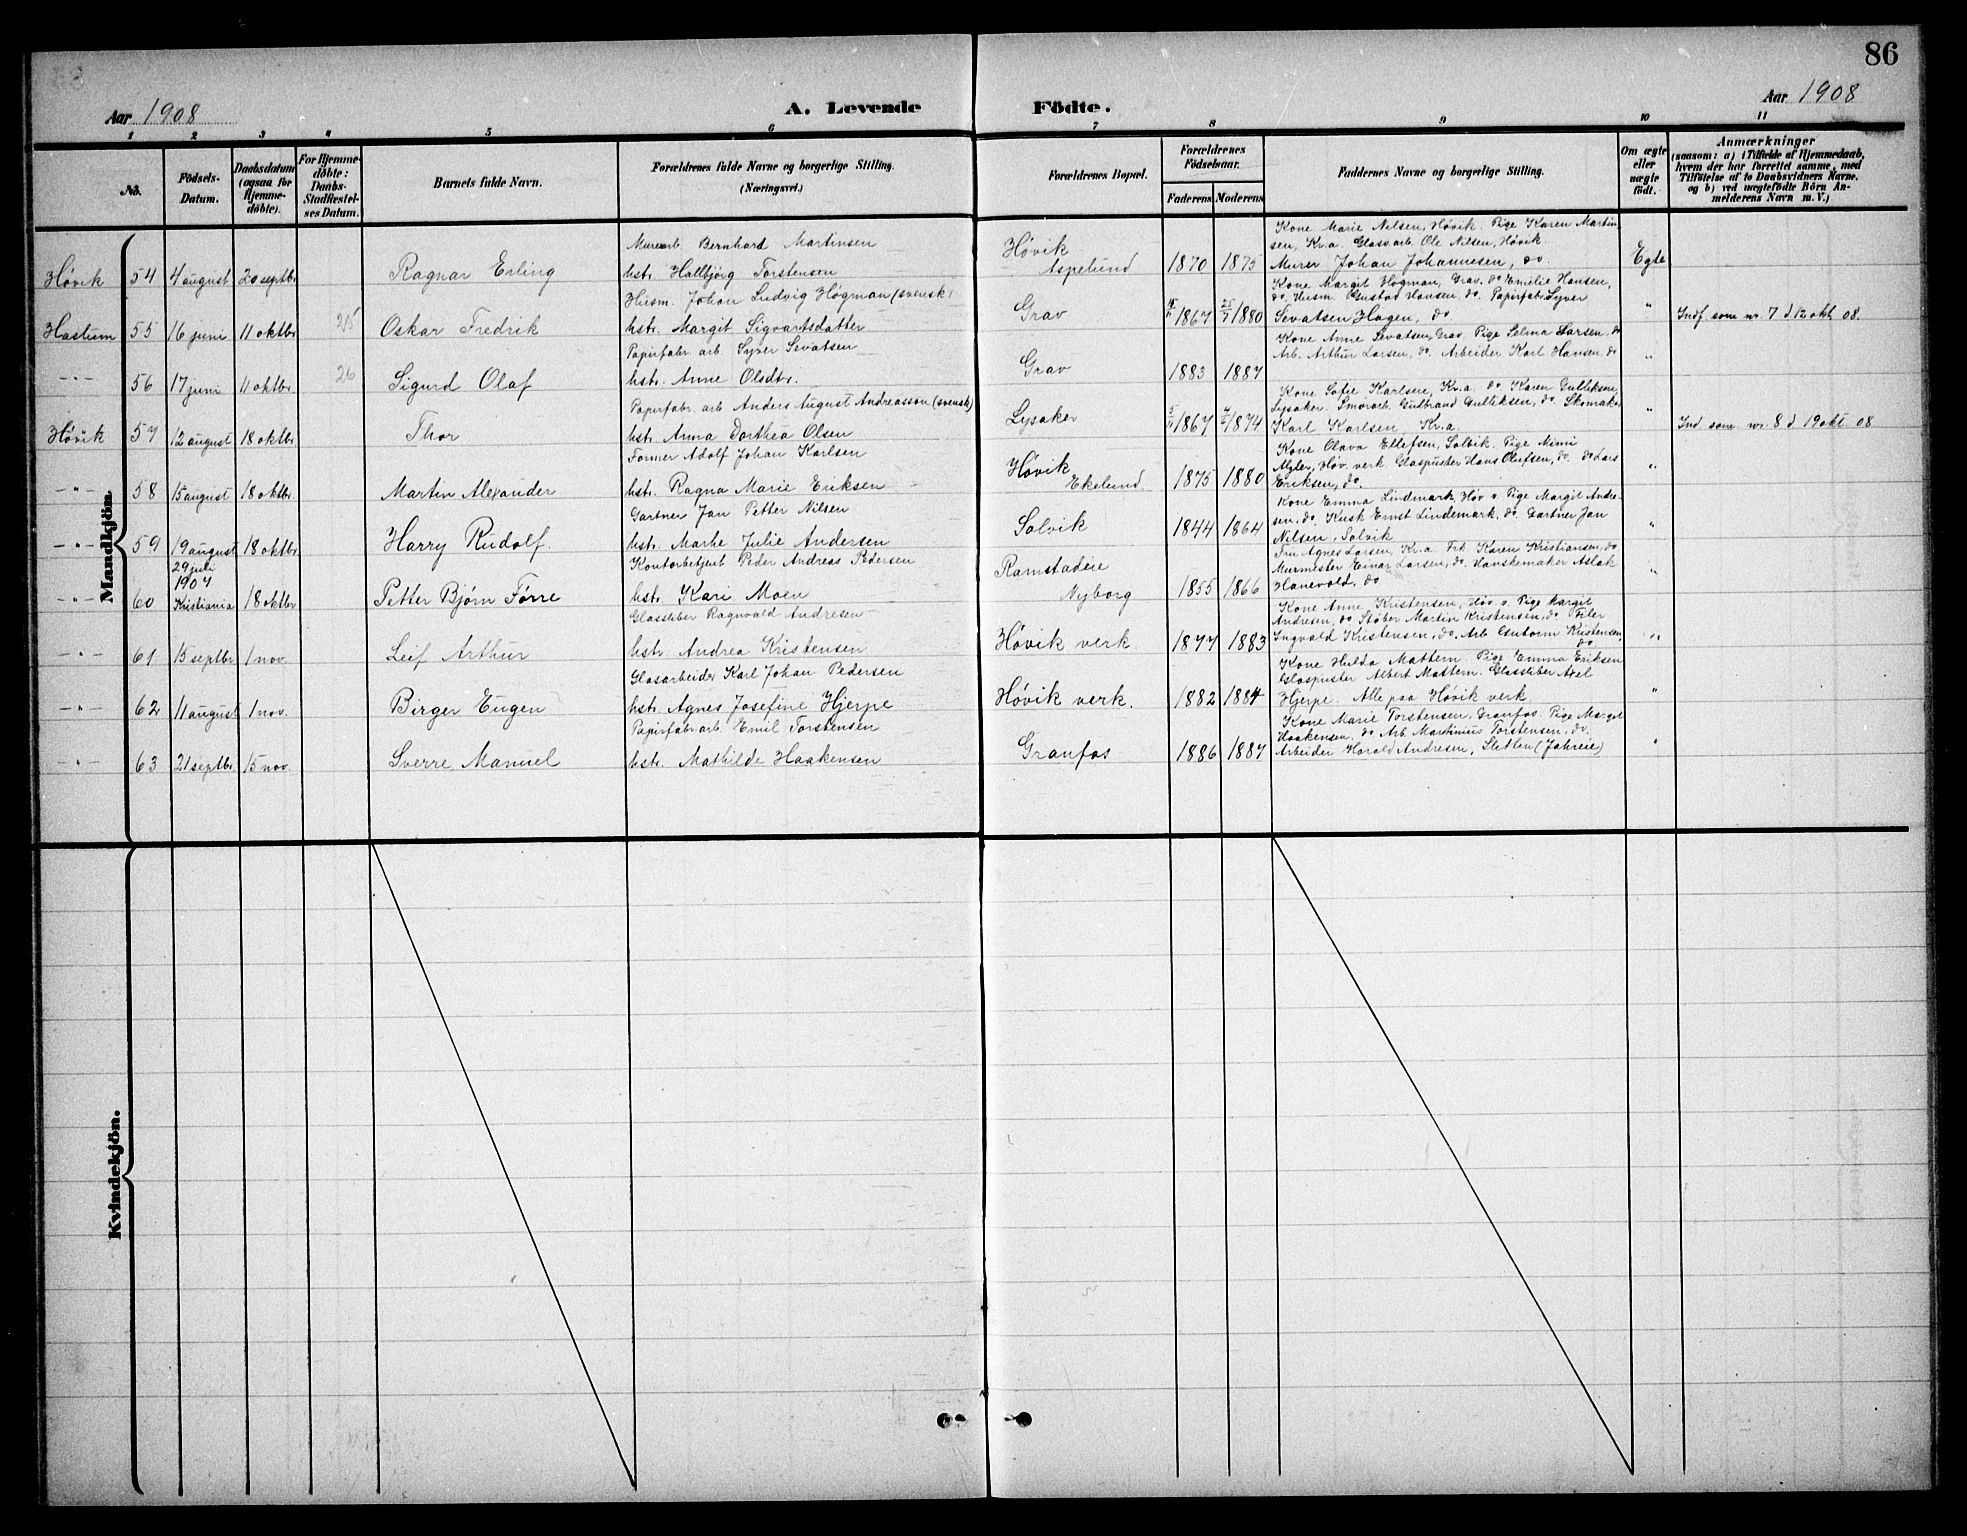 86
Aar 1908
A. Levende Födte.
Aar 1908
1 2 3 4 5 6 7 8 9 10 11
No.
Födsels-Datum.
Daabsdatum (ogsaa for Hjemme-döbte).
For Hjemme-döbte: Daabs-Stadfæstel-ses Datum.
Barnets fulde Navn.
Forældrenes fulde Navne og borgerlige Stilling. (Næringsvei.)
Forældrenes Bopæl.
Forældrenes Födselsaar.
Faderens Moderens
Faddernes Navne og borgerlige Stilling.
Om ægte eller uægte født.
Anmærkninger (saasom: a) i Tilfælde af Hjemmedaab, hvem der har forrettet samme, med Tilföielse af to Daabsvidners Navne, og b) ved uægtefödte Börn An-melderens Navn m. V.)
Mandkjön.
Høvik 54 4 august 20 septbr Ragnar Erling
Murearb. Bernhard Martinsen
hstr. Hallbjørg Torstensen
Høvik Aspelund 1870 1875
Kone Marie Nilsen, Høvik. Pige Karen Martin-
sen, Kr.a. Glasarb. Ole Nilsen, Høvik
Murer Johan Johannesen, do
Egte
Haslum 55 16 juni 11 oktbr 25 Oskar Fredrik
Husm. Johan Ludvig Høgman (svensk)
hstr. Margit Sigvartsdatter
Grav 1867 25/7 1880
Kone Margit Høgman, Grav. do Emilie Hansen,
do. Husm. Gustad Hansen, do. Papirfabr. Syver
Sevatsen Hagen, do
"
Indf som nr. 7 d. 12 okt. 08.
-"- 56 17 juni 11 oktbr. 26 Sigurd Olaf
Papirfabr. arb. Syver Sevatsen
hstr. Anne Olsdtr.
Grav 1883 1887
Kone Anne Sevatsen, Grav. Pige Selma Larsen, do
Arb. Arthur Larsen, do. Arbeider Karl Hansen, do
"
Høvik 57 12 august 18 oktbr. Thor
Papirfabr. arb. Anders August Andreasson (svensk)
hstr. Anna Dorthea Olsen
Lysaker 1867 1874
Kone Sofie Karlsen, Kr.a. do Karen Gulliksen
Lysaker. Smørarb. Gulbrand Gulliksen, do. Skomaker
Karl Karlsen, Kr.a.
"
Ind. som nr. 8 d. 19 okt. 08
-"- 58 15 august 18 oktbr. Martin Alexander
Former Adolf Johan Karlsen
hstr. Ragna Marie Eriksen
Høvik Ekelund 1875 1880
Kone Olava Ellefsen, Solvik. Pige Mimi
Høv. verk Glaspuster Hans Olufsen, do. do Lars
Eriksen, do.
"
-"- 59 19 august 18 oktbr. Harry Rudolf.
Gartner Jan Petter Nilsen
hstr. Marhe Julie Andersen
Solvik 1844 1864
Kone Emma Lindmark, Høv v. Pige Margit Andre-
sen, do. Kusk Ernst Lindemark, do. Gartner Jan
Nilsen, Solvik
"
-"- 60 29 juli 1907 Kristiania 18 oktbr Petter Bjørn Førre
Kontorbetjent Peder Andreas Pedersen
hstr. Kari Moen
Ramstadeie Nyborg 1855 1866
Fru Agnes Larsen, Kr.a. Frk Karen Kristiansen, do.
Murmester Einar Larsen, do. Hanskemaker Aslak
Hanevold, do
"
-"- 61 15 septbr 1 nov. Leif Arthur
Glassliber Ragnvald Andresen
hstr. Andrea Kristensen
Høvik verk. 1877 1883
Kone Anne Kristensen, Høv v. Pige Margit
Andresen, do Støber Martin Kristensen, do. Filer
Ingvald Kristensen, do. Arb Gutorm Kristensen
do
"
-"- 62 11 august 1 nov. Birger Eugen
Glasarbeider Karl Johan Pedersen
hstr. Agnes Josefine Hjerpe
Høvik verk. 1882 1884
Kone Hulda Mattern. Pige Emma Eriksen
Glaspuster Albert Mattern. Glassliber Axel
Hjerpe. Alle paa Høvik verk
"
-"- 63 21 septbr. 15 nov. Sverre Manuel
Papirfabr. arb. Emil Torstensen
hstr. Mathilde Haakensen
Granfos 1886 1887
Kone Marie Torstensen, Granfos. Pige Margit
Haakensen, do Arb Martinius Torstensen, do.
Arbeider Harald Andresen, Sletten (Johreie)
"
Kvindekjön.